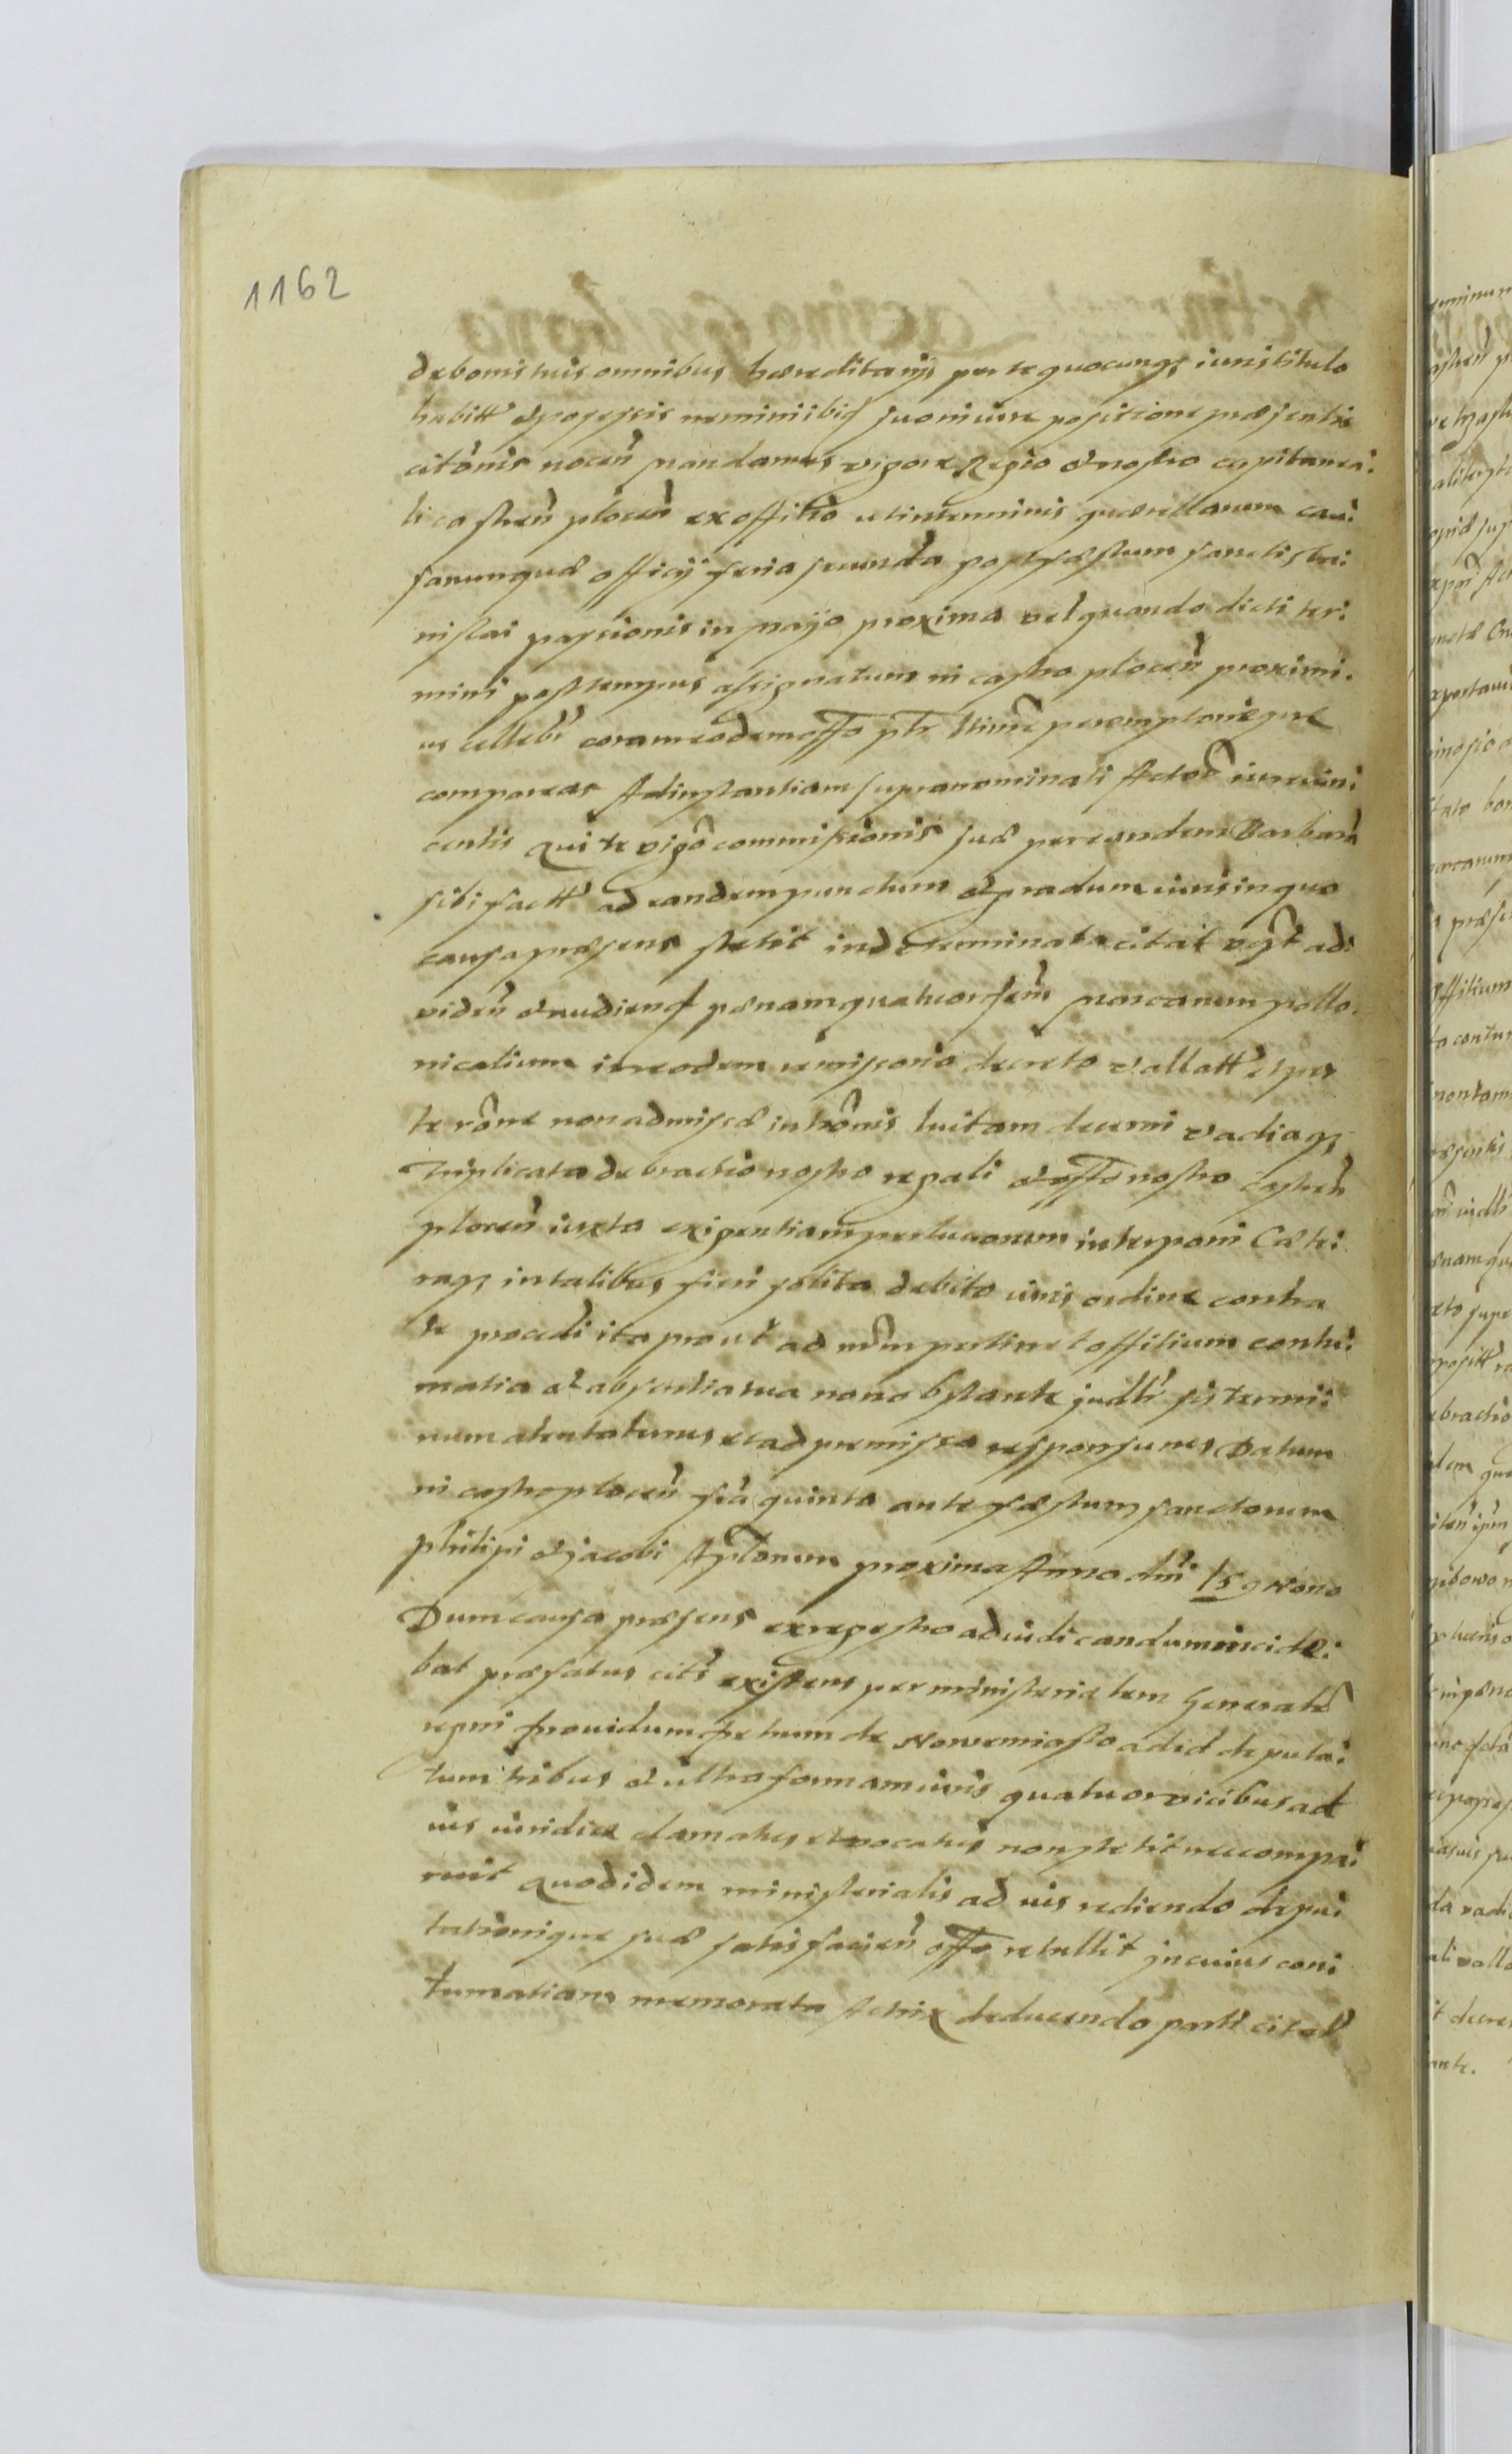 1162
de bonis tuis omnibus hæreditarijs per te quocunq3 iuris titulo
habitt et possessis nemini ibid suo in iure positione præsentis
citõnis nocen̄ mandamus vigore Regio et nostro capitanea:
li castren̄ plocen̄ ex offitio ut in terminis quærellarum cau:
sarumquæ officij feria secunda post fæstum sancti sta:
nislai passionis in mayo proxima vel quando dicti ter:
mini post tempus assignatum in castro plocen̄ proximi.
us cellebr coram eodem offo ptr ltime peremptorieque
compareas Ad instantiam supranominati Actor iure vin:
centis Qui te vigõ commissionis suæ per eandem Barbarā
sibi factt ad eandem punctum et gradum iuris in quo
causa præsens stetit indeterminata citat vgt ad:
viden̄ et audiend pænam quatuordem marcarum pollo.
nicalium in eodem remissorio decreto vallatt et per
te rõne non admissæ intrõnis luitam decerni vadiaq3
Triplicata de brachio nostro regali et offo nostro castren̄
plocen̄ iuxta exigentiam perlucrorum interponi Cæte:
raq3 in talibus fieri solita debito iuris ordine contra
te procedi ita prout ad nrm pertinet offitium contu:
matia et absentia tua non obstante judlr sis termi:
num attentaturus et ad premissa responsurus Datum
in castro plocen̄ feria quinta ante fæstum sanctorum
philipi et jacobi Aplorum proxima Anno dni 159 Nono
Dum causa præsens ex regestro ad iudicandum incide:
bat præfatus cits existens per ministerialem Generale
regni providum petrum de Novemiasto ad id deputa:
tum tribus et ultra formam iuris quatuor vicibus ad
ius iuridice clamatus et vocatus non stetit nec compa:
ruit Quod idem ministerialis ad ius rediendo depu:
tationique suæ satisfacien̄ offo retullit jn cuius con:
tumatiam memorata Actrix deducendo parti citat